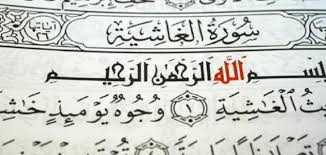 سُورَةُ الغَاشِيَةِ
آيَاتُهَا ٢٦
ـسمِ اللَّهِ الرَّحْمَٰنِ الرَّحِيمِ
ـثُ الْغَاشِيَةِ ١ وُجُوهٌ يَوْمَئِذٍ خَاشِـ